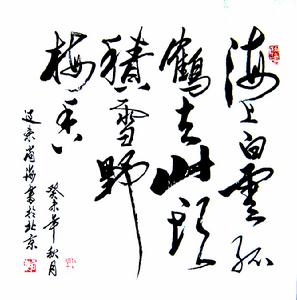 海上白雲孤
鶴去山頭
積雪野
梅香
癸未年秋月
書於北京